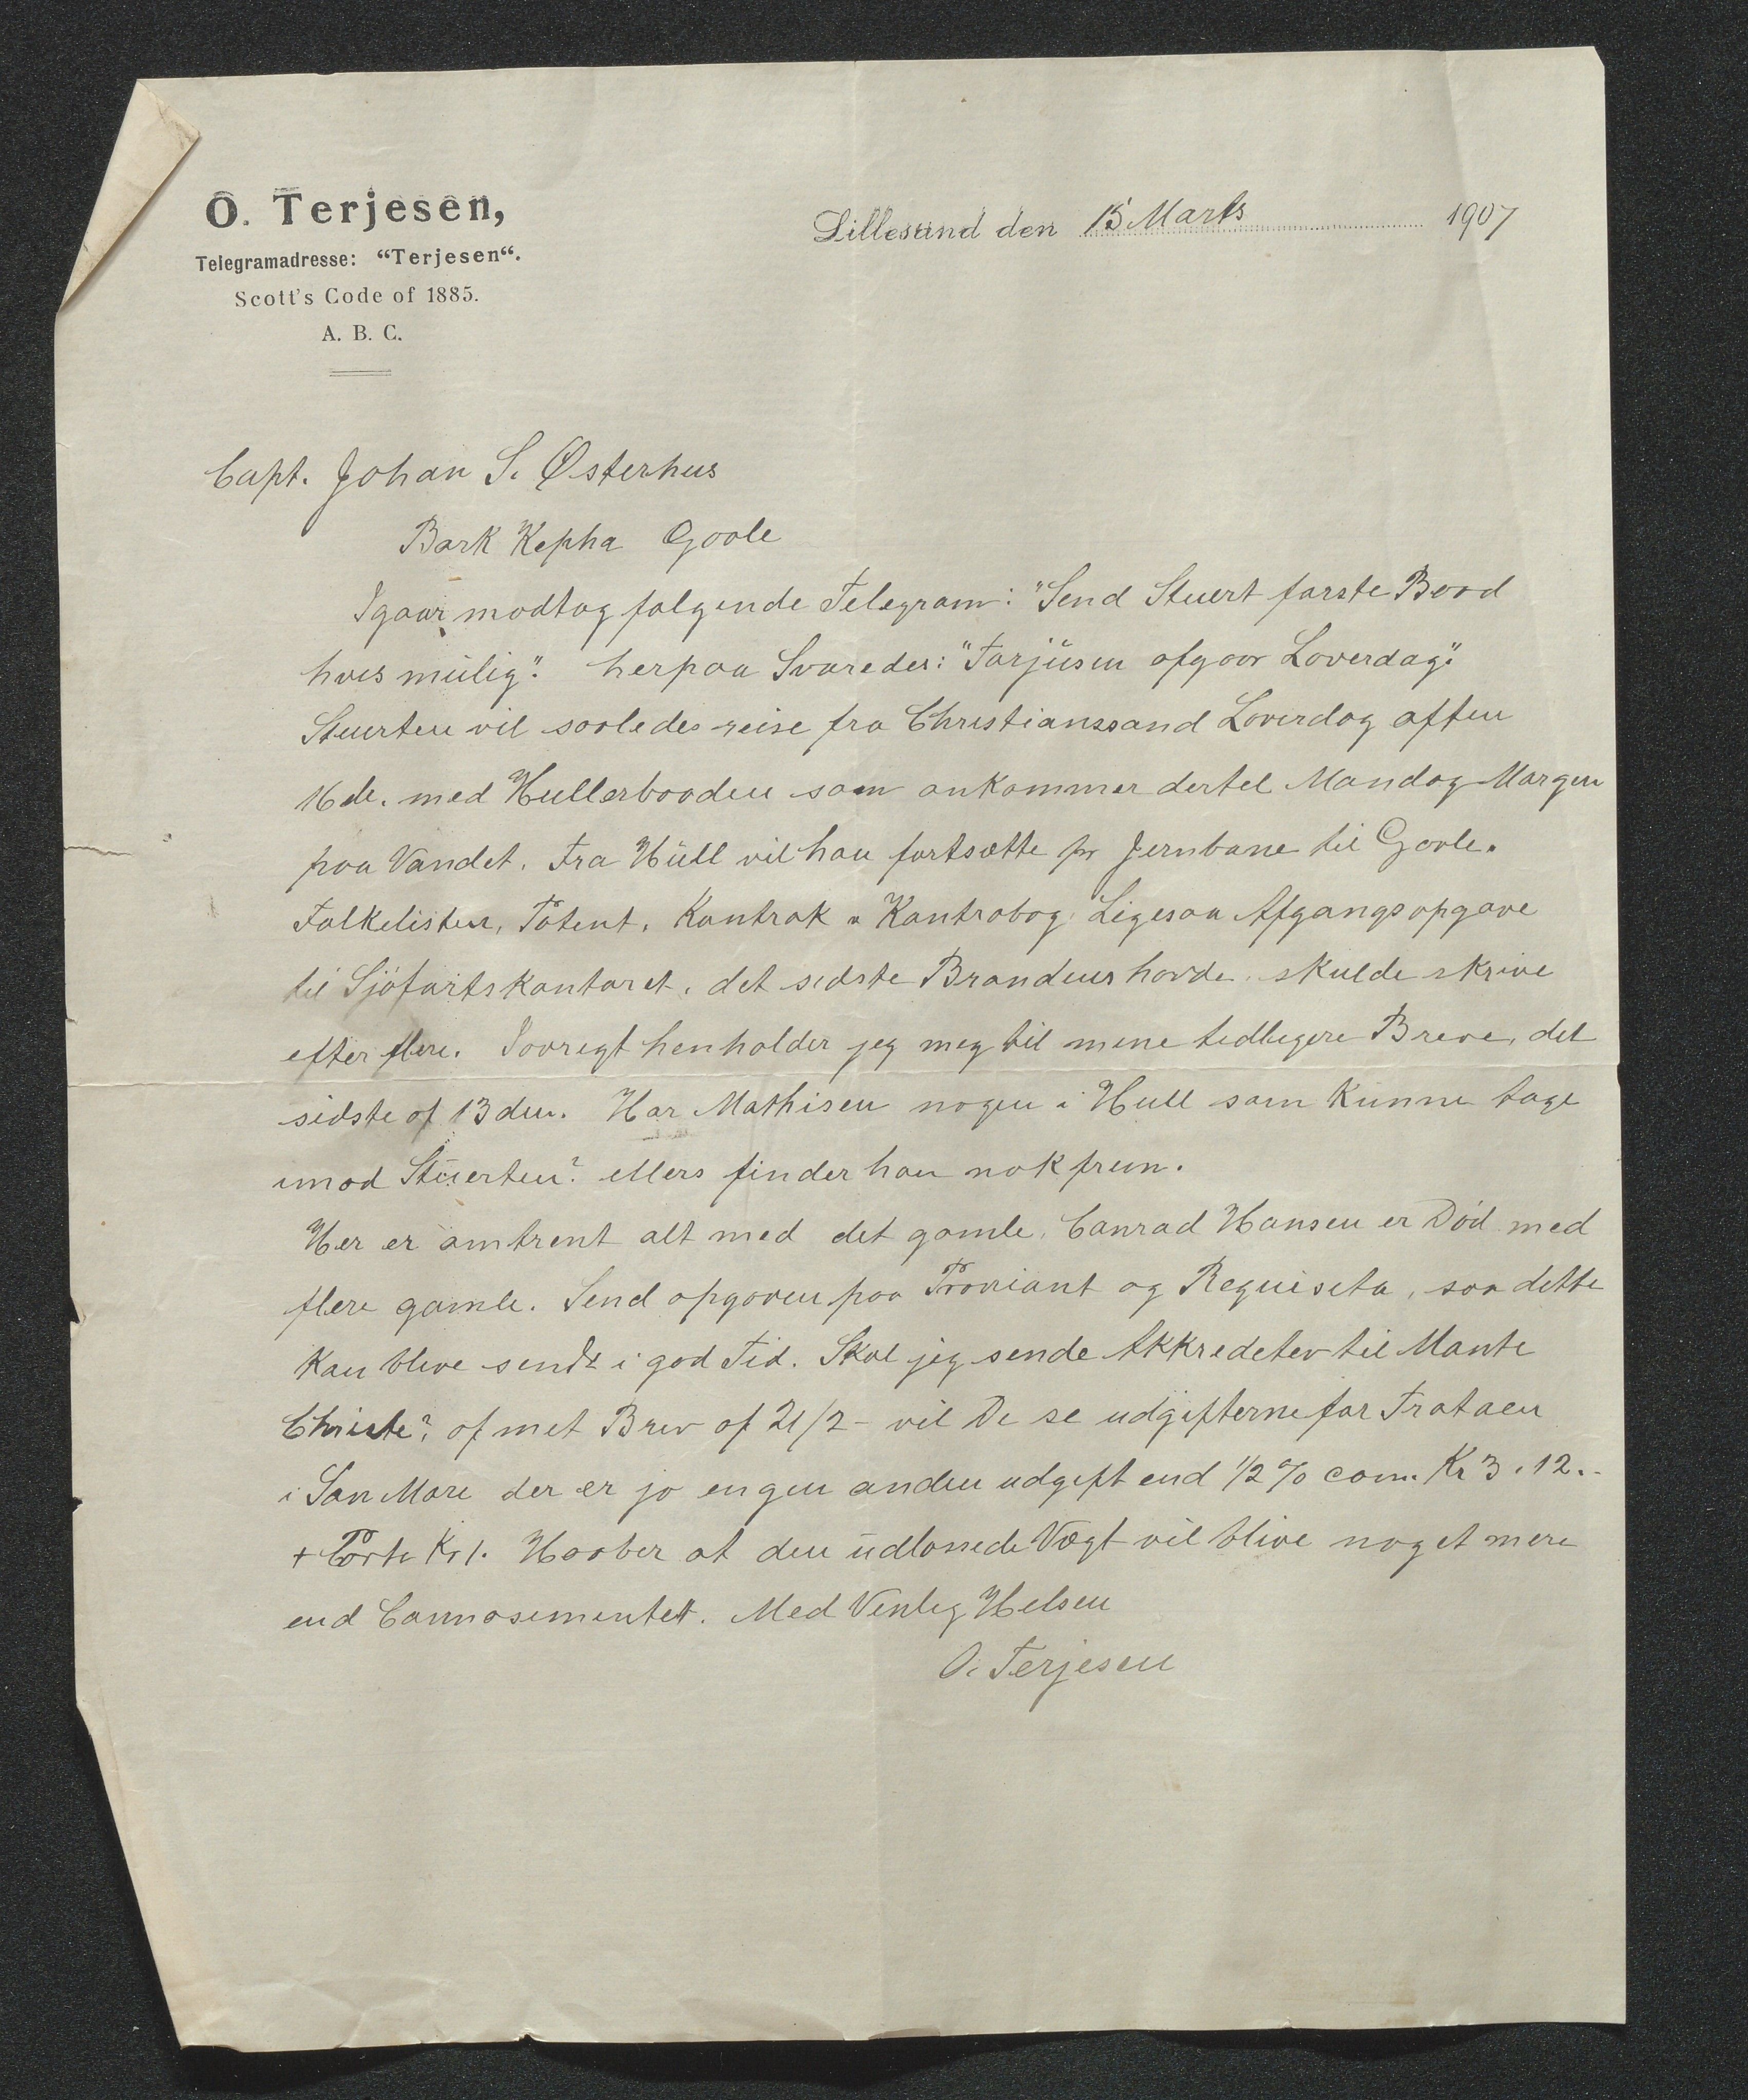 O. Terjesen,
Telegramadresse: “Terjesen“.
Scott's Code of 1885.
A. B. C.
Lillesand den 15 Marts 1907
Capt. Johan S. Østerhus
Bark Kepha Goole
Igaar modtog følgende Telegram: "Send Stuert første Baad
hvis mulig". herpaa Svaredes: "Tarjusen afgaar Løverdag".
Stuerten vil saaledes reise fra Christianssand Løverdag aften
16de. med Hullerbaaden som ankommer dertel Mandag Morgen
paa Vandet. Fra Hull vil han fortsætte pr Jernbane til Goole.
Folkelisten, Patent, Kontrak & Kontrabog. Ligesaa Afgangsopgave
til Sjøfartskontoret. det sidste Brandeur havde. skulde skrive
efter flere. Iøvrigt henholder jeg meg til mine tedligere Breve, det
sidste af 13den. Har Mathisen nogen i Hull som kunne tage
imod Stuerten? ellers finder han nok frem.
Her er omtrent alt med det gamle. Conrad Hansen er Død med
flere gamle. Send opgaven paa Proviant og Requiseta, saa dette
kan blive sendt i god Tid. Skal jeg sende Akkredetev til Monte
Christe? af met Brev af 21/2 - vil De se udgifterne for Trataen
i San Mare der er jo engen anden udgift end 1/2 % com. Kr 3.12.-
+ Porto Kr 1. Haaber at den udlossede Vægt vil blive noget mere
end Connosementet. Med Venlig Helsen
O. Terjesen